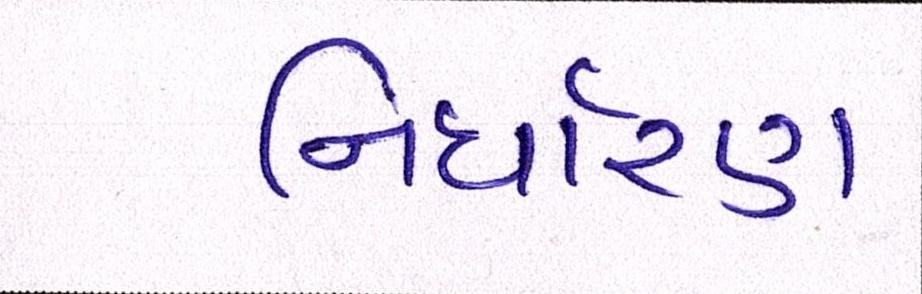 નિર્ધારણ